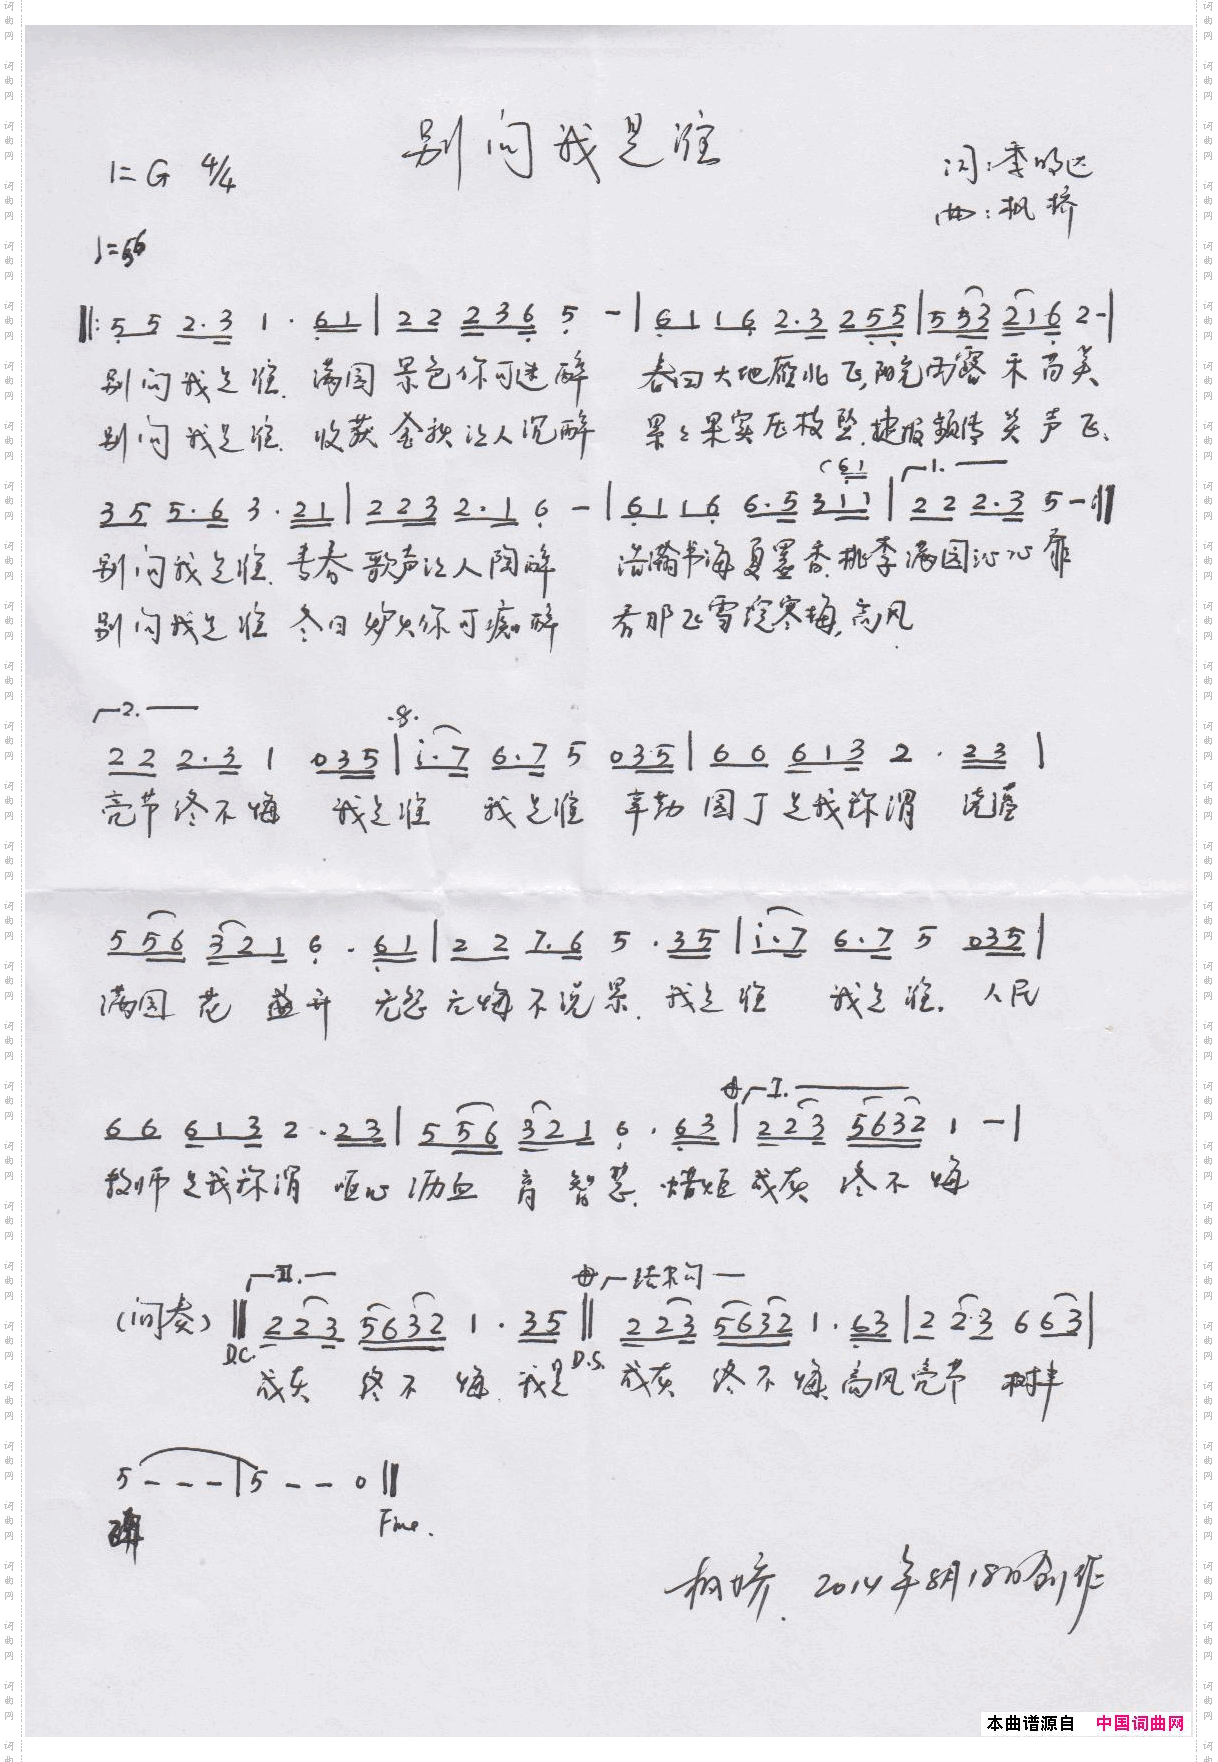 别问我是谁
1=G 4/4
词:李明达
曲:枫桥
♩=56
‖: 5 5 2·3 1· 61 | 22 236 5 - | 61 16 2·3 255 | 553 216 2 - |
别问我是谁. 满园景色你可迷醉 春回大地雁北飞,阳光雨露禾苗美
别问我是谁. 收获金秋让人沉醉 果果实压枝坠,捷报频传笑声飞、
(61 ┌1.──
35 5·6 3·21 | 223 2·1 6 - | 61 16 6·5 311 | 22 2·3 5 - :‖
别问我是谁. 青春歌声让人陶醉 浩瀚书海夏墨香,桃李满园沁心扉
别问我是谁 冬日炉火你可痴醉 看那飞雪绽寒梅,高风
┌2.── 𝄋
22 2·3 1 035 | i·7 6·7 5 035 | 66 613 2·23 |
亮节终不悔 我是谁 我是谁 辛勤园丁是我称谓 浇灌
5 56 321 6·61 | 22 7·6 5·35 | i·7 6·7 5 035 |
满园花盛开 无怨无悔不说累. 我是谁 我是谁. 人民
𝄌 ┌I.──
66 613 2·23 | 5 56 321 6·63 | 223 5632 1 - |
教师是我称谓 呕心沥血育智慧. 蜡炬成灰终不悔
┌II.── 𝄌 ┌结束句─
(间奏) ‖ 223 5632 1·35 ‖ 223 5632 1·63 | 2 2·3 6 63 |
D.C. D.S.
成灰 终不悔. 我是 成灰 终不悔,高风亮节 树丰
5 - - - | 5 - - 0 ‖
碑 Fine.
枫桥. 2014年8月18日创作
本曲谱源自 中国词曲网
词曲网